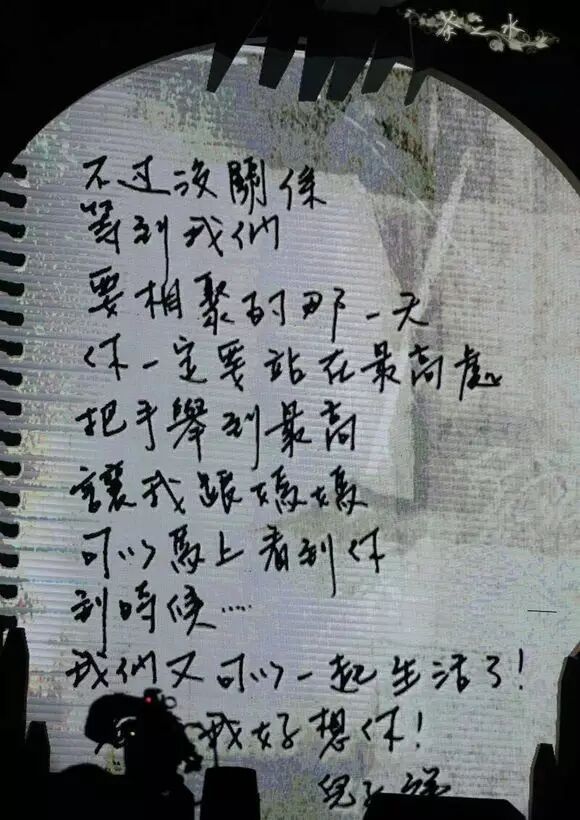 茶之水
不过沒關係
等到我們
要相聚的那一天
你一定要站在最高處
把手舉到最高
讓我跟媽媽
可以馬上看到你
到時候……
我們又可以一起生活了!
我好想你!
兒子